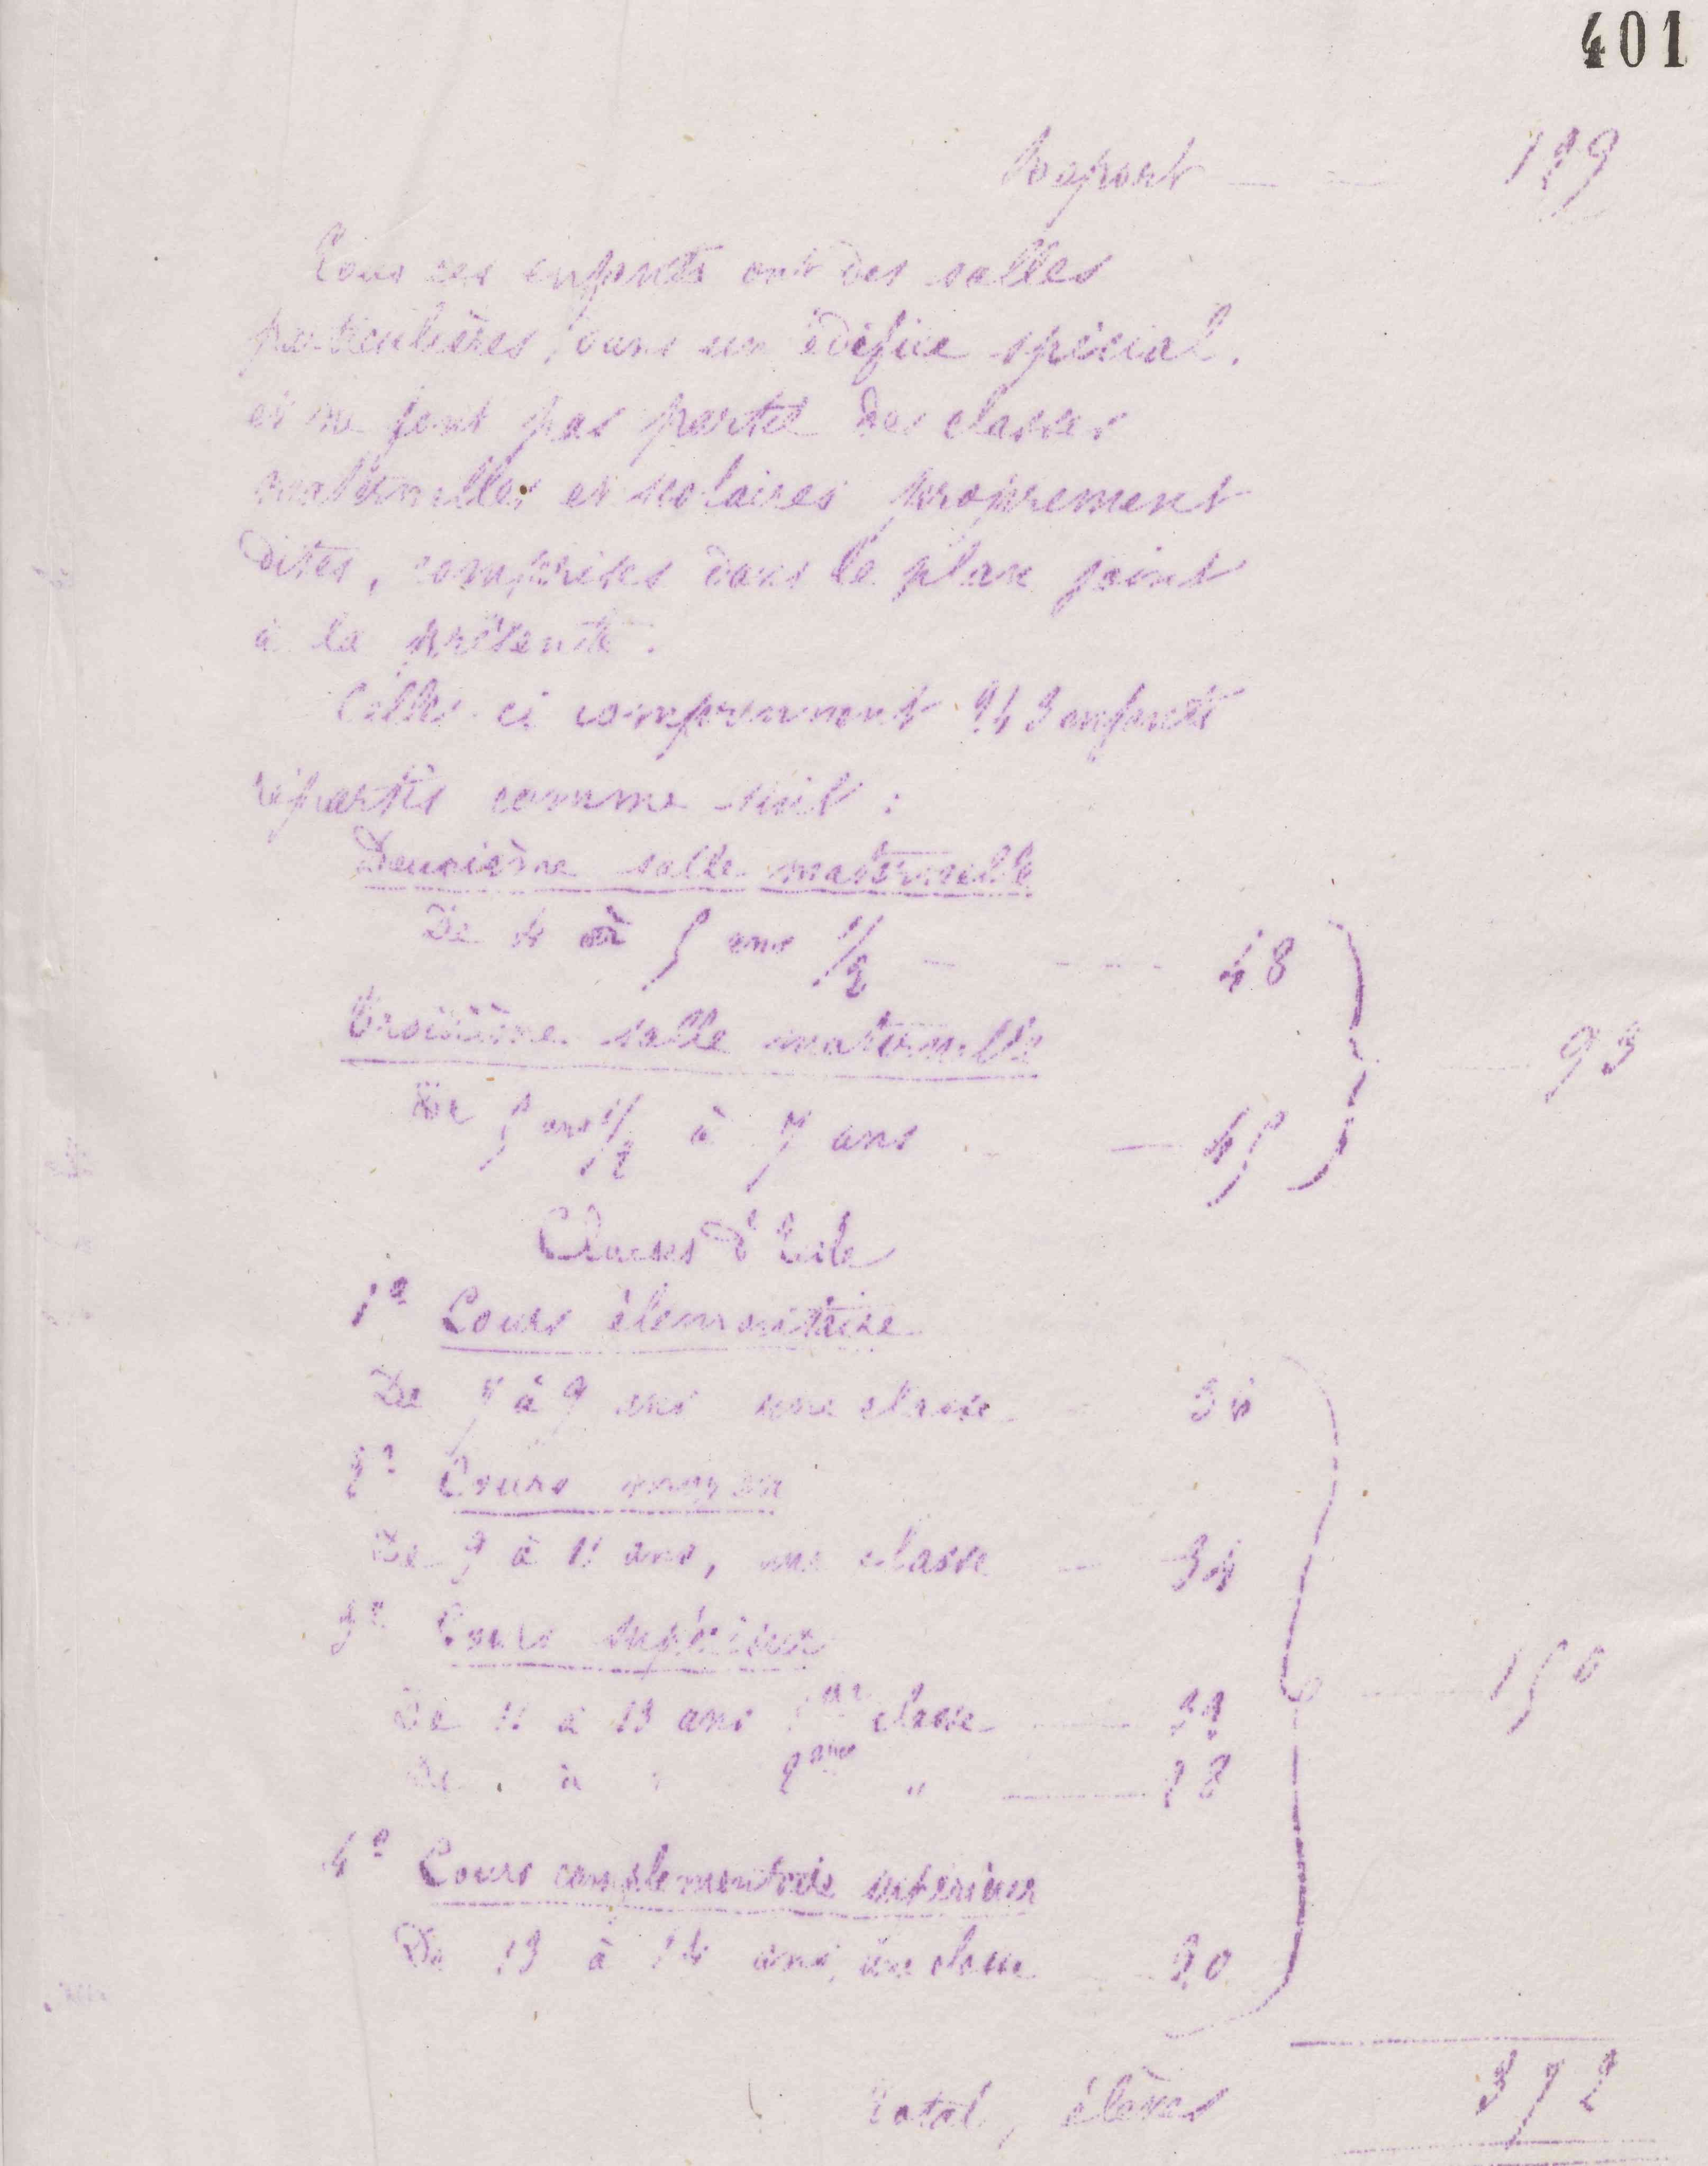 401
Report — — 129
Tous ces enfants ont des salles
particulières, dans un édifice spécial,
et ne font pas partie des classes
maternelles et scolaires proprement
dites, comprises dans le plan joint
à la présente.
Celles-ci comprennent 243 enfants
répartis comme suit :
Deuxième salle maternelle
De 4 à 5 ans 1/2 — 48
Troisième salle maternelle 93
De 5 ans 1/2 à 7 ans — 45
Classes d'Ecole
1º Cours élementaire
De 7 à 9 ans une classe 36
2º Cours moyen
De 9 à 11 ans, une classe — 34
3º Cours supérieur 150
De 11 à 13 ans 1ère classe — 32
De " à " 2ème " — 28
4º Cours complementaire supérieur
De 13 à 14 ans, une classe 20
Total, élèves 372